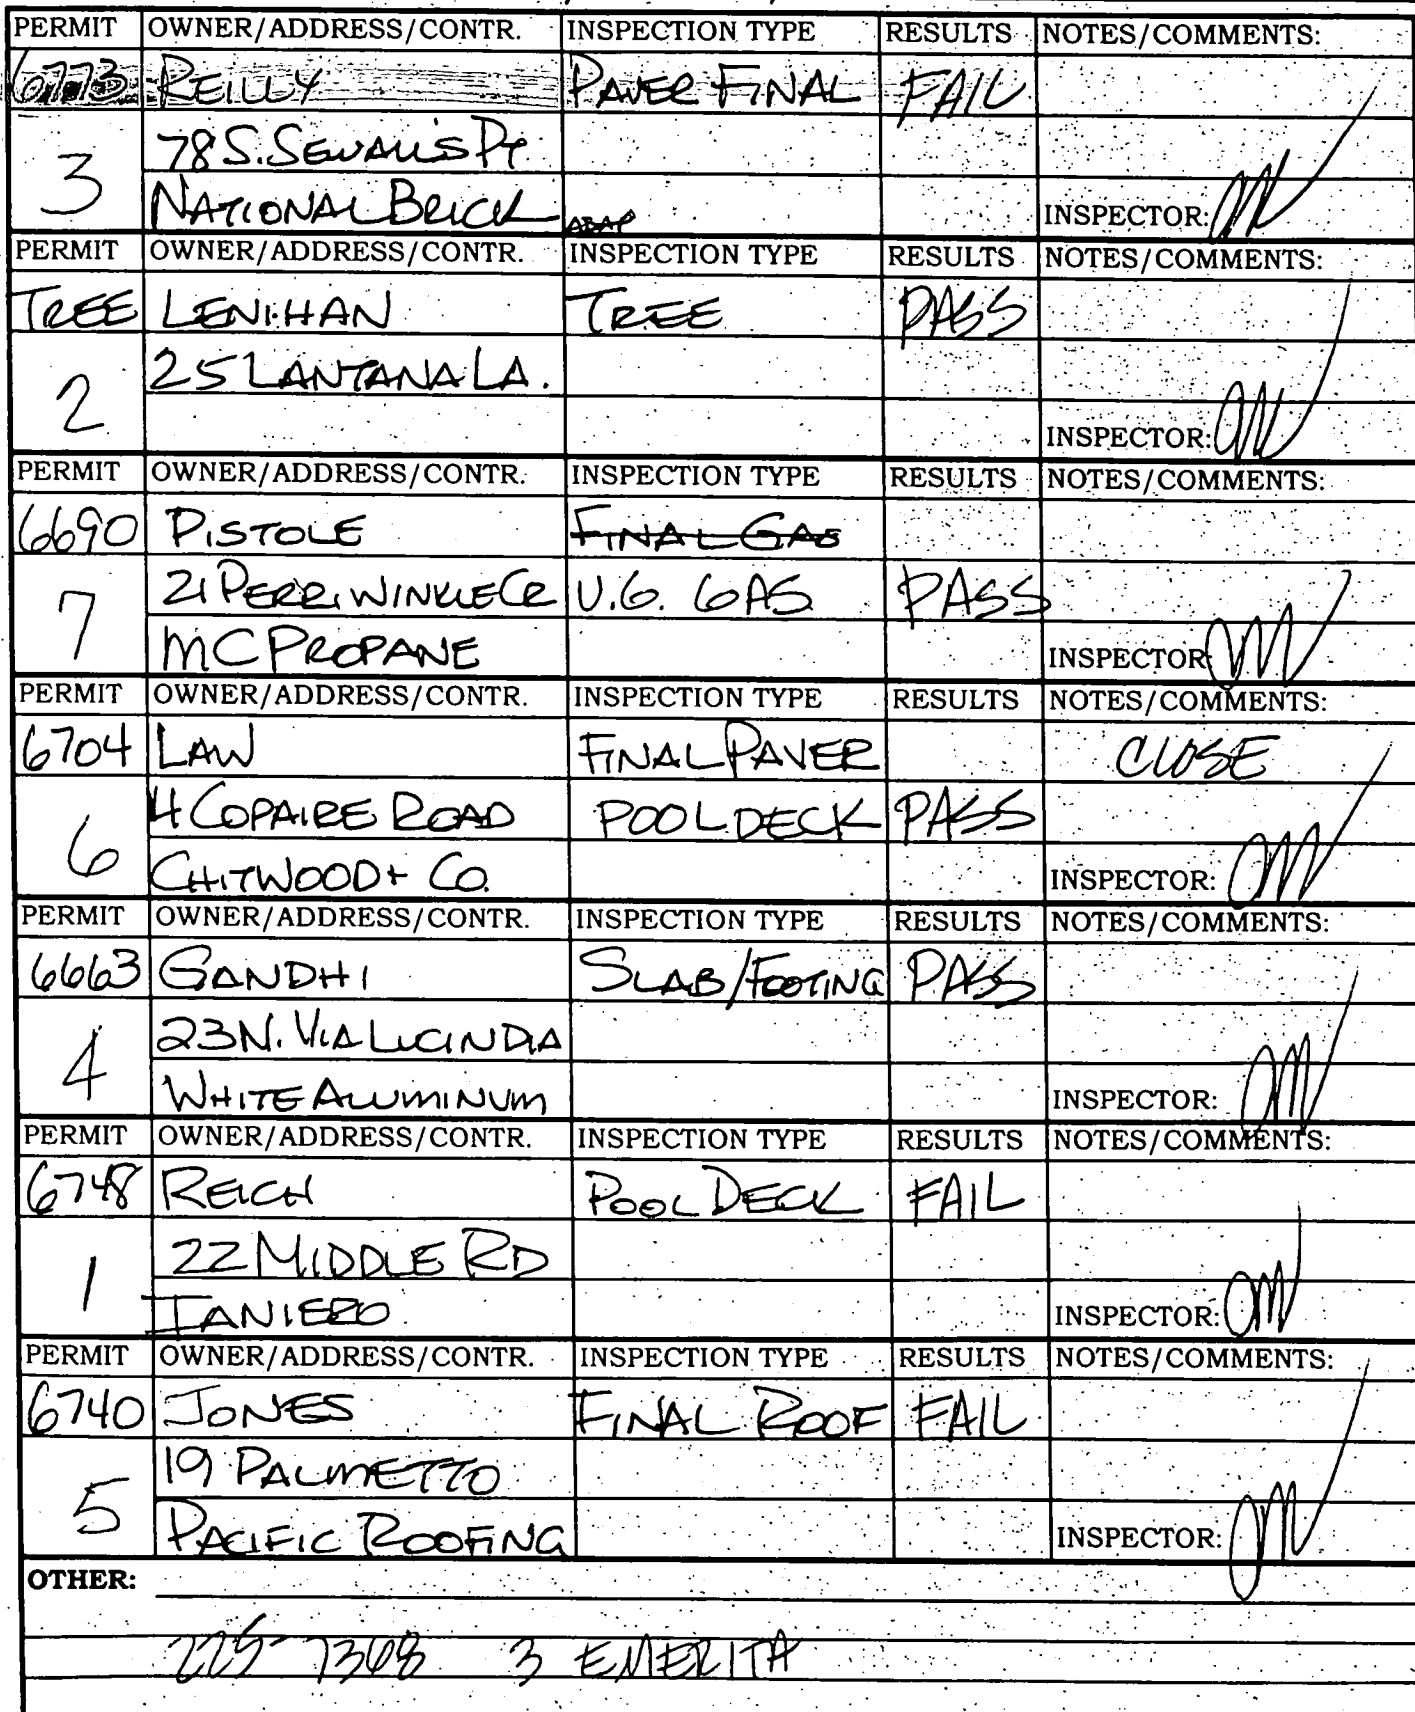 PERMIT OWNER/ADDRESS/CONTR. INSPECTION TYPE RESULTS NOTES/COMMENTS:
6773 REILLY PAVER FINAL FAIL
3 78 S. SEWALL'S PT
NATIONAL BRICK ASAP INSPECTOR:
PERMIT OWNER/ADDRESS/CONTR. INSPECTION TYPE RESULTS NOTES/COMMENTS:
TREE LENIHAN TREE PASS
2 25 LANTANA LA.
INSPECTOR:
PERMIT OWNER/ADDRESS/CONTR. INSPECTION TYPE RESULTS NOTES/COMMENTS:
6690 PISTOLE FINAL GAS
7 21 PERRIWINKLE CR U.G. GAS PASS
MC PROPANE INSPECTOR
PERMIT OWNER/ADDRESS/CONTR. INSPECTION TYPE RESULTS NOTES/COMMENTS:
6704 LAW FINAL PAVER CLOSE
6 4 COPAIRE ROAD POOL DECK PASS
CHITWOOD + CO. INSPECTOR:
PERMIT OWNER/ADDRESS/CONTR. INSPECTION TYPE RESULTS NOTES/COMMENTS:
6663 GANDHI SLAB/FOOTING PASS
4 23 N. VIA LUCINDIA
WHITE ALUMINUM INSPECTOR:
PERMIT OWNER/ADDRESS/CONTR. INSPECTION TYPE RESULTS NOTES/COMMENTS:
6748 REICH POOL DECK FAIL
1 22 MIDDLE RD
IANIERO INSPECTOR:
PERMIT OWNER/ADDRESS/CONTR. INSPECTION TYPE RESULTS NOTES/COMMENTS:
6740 JONES FINAL ROOF FAIL
5 19 PALMETTO
PACIFIC ROOFING INSPECTOR:
OTHER:
225-7368 3 EMERITA